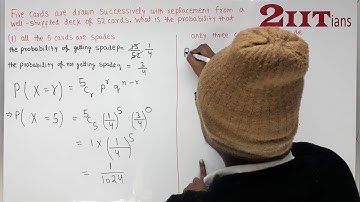 Five cards are drawn successively with replacement from a
well-shuffled deck of 52 cards. What is the probability that
2IITians
(i) all the 5 cards are spades
only three
the probability of getting spade p = 13/52 = 1/4
the probability of not getting spade q = 3/4
P(X = r) = 5Cr p^r q^n-r
⇒ P(X = 5) = 5C5 (1/4)^5 (3/4)^0
= 1 × (1/4)^5
= 1/1024